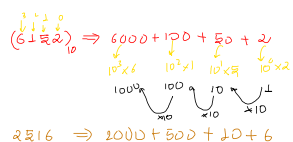 3 2 1 0
(6152)₁₀ ⇒ 6000 + 100 + 50 + 2
10³×6 10²×1 10¹×5 10⁰×2
1000 100 10 1
×10 ×10 ×10
2516 ⇒ 2000 + 500 + 10 + 6